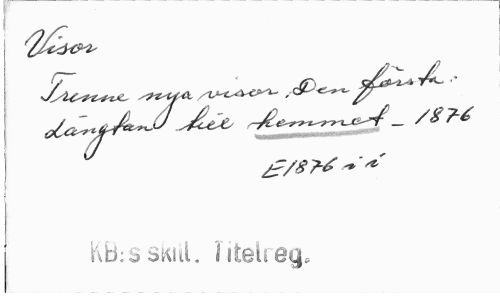 Visor
Trenne nya visor. Den första:
Längtan till hemmet – 1876
E1876 i i
KB:s skill. Titelreg.